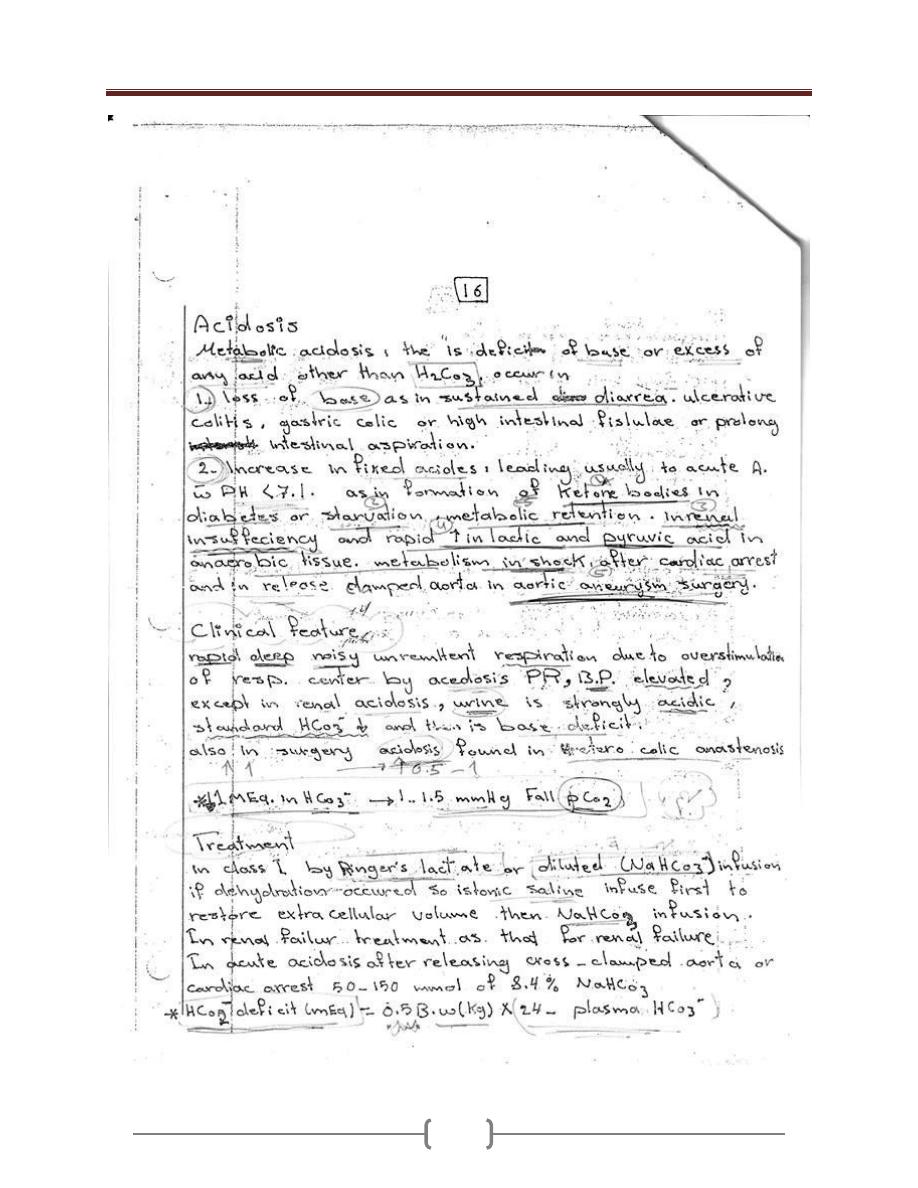 16
Acidosis
Metabolic acidosis, the is deficit of base or excess of
any acid other than H2Co3, occur in
1.. loss of base as in sustained diarrea. ulcerative
colitis, gastric colic or high intestinal fislulae or prolong
intestinal aspiration.
2- Increase in fixed acides, leading usually to acute A.
w̄ PH <7.1. as in formation of Ketone bodies in
diabetes or starvation, metabolic retention. in renal
insuffeciency and rapid ↑ in lactic and pyruvic acid in
anaerobic tissue. metabolism in shock, after cardiac arrest
and in release clamped aorta in aortic aneurysm surgery.
Clinical feature
rapid deep noisy unremittent respiration due to overstimulation
of resp. center by acedosis PR, B.P. elevated,
except in renal acidosis, urine is strongly acidic,
standard HCo3- ↓ and is base deficit.
also in surgery acidosis found in colic anastenosis
↑ 1 → ↑ 0.5 - 1
* 1 MEq. in HCo3- → 1.. 1.5 mmHg Fall pCo2
Treatment
in class I by Ringer's lactate or diluted (NaHCo3-) infusion
if dehydration occured so istonic saline infuse first to
restore extracellular volume then NaHCo3 infusion.
In renal failur treatment as that for renal failure
In acute acidosis after releasing cross-clamped aorta or
cardiac arrest 50-150 mmol of 8.4% NaHCo3
* HCo3- deficit (mEq) = 0.5 B.w (Kg) X (24 - plasma HCo3-)